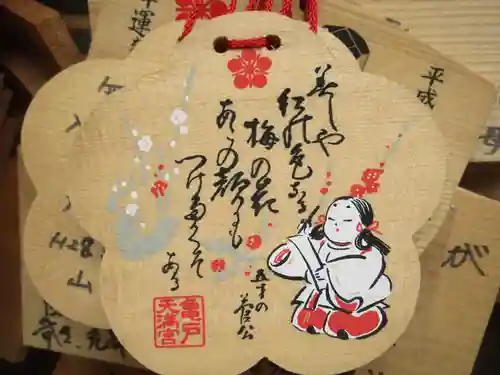 美しや
紅の色なる
梅の花
あこの顔にも
つけたくぞ
ある
五才の
菅公
亀戸
天満宮
平成
H28
山
が